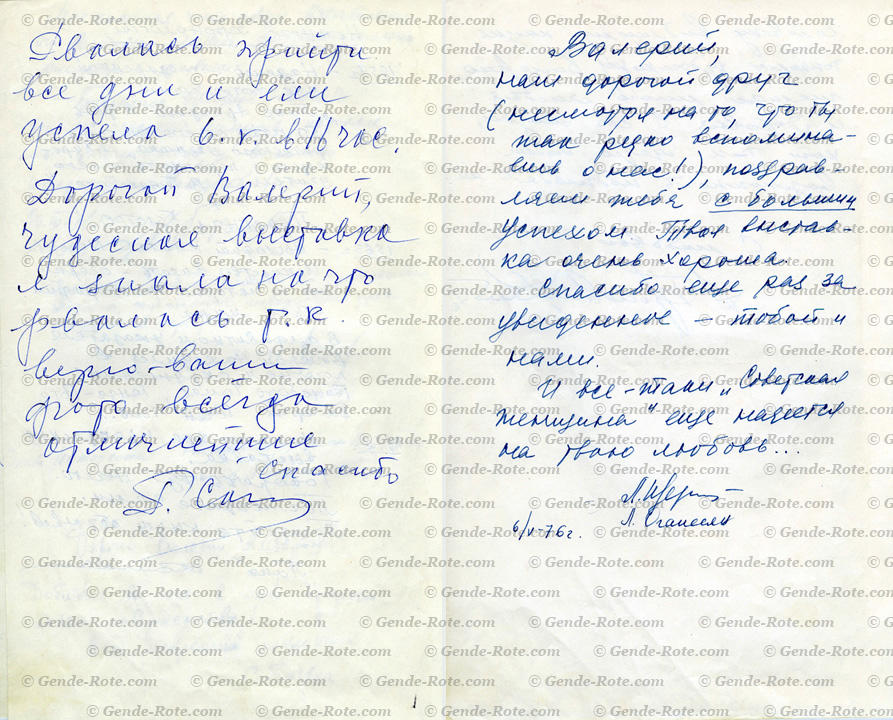 Рвалась прийти
все дни и еле
успела 6. V. в 16 час.
Дорогой Валерий,
чудесная выставка
я знала на что
рвалась т. к.
верю - ваши
фото всегда
отличнейшие
Спасибо
Валерий,
наш дорогой друг
(несмотря на то, что ты
так редко вспомина-
ешь о нас!), поздрав-
ляем тебя с большим
успехом Твоя выстав-
ка очень хороша.
Спасибо еще раз за
увиденное – тобой и
нами.
И все-таки „Советская
женщина" еще надеется
на твою любовь...
Л. Оганесян
6/V-76г.
© Gende-Rote.com